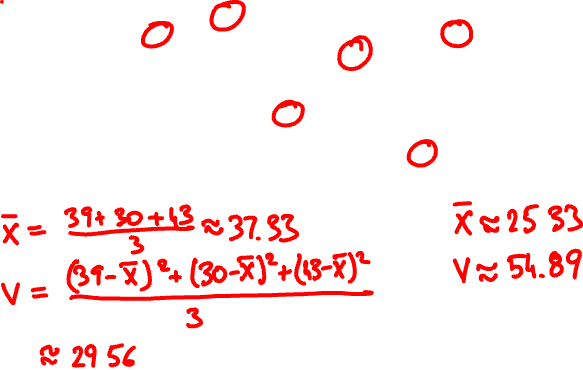 x̄ = (39+30+43)/3 ≈ 37.33
V = ((39-x̄)²+(30-x̄)²+(43-x̄)²)/3
≈ 29 56
x̄ ≈ 25 33
V ≈ 54.89